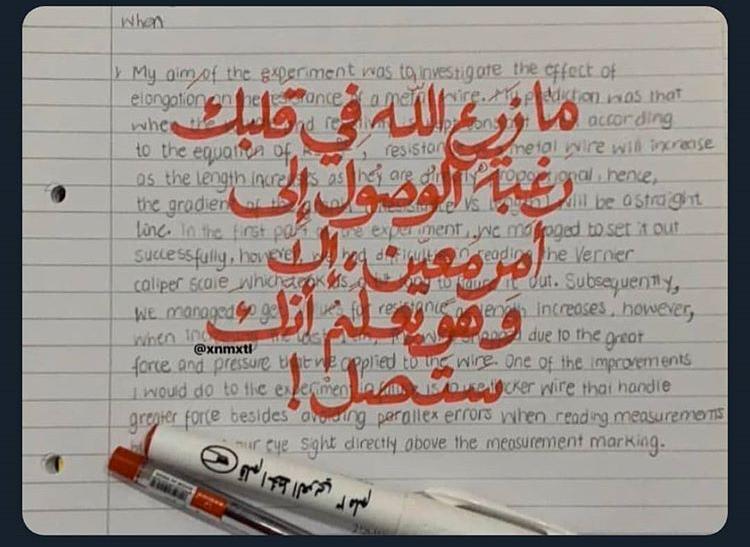 when
My aim of the experiment was to investigate the effect of
elongation on the resistance of a metal wire. My prediction was that
when the according
to the equation of , resistance metal wire will increase
as the length increases as they are directly proportional, hence,
the gradient of the vs length will be a straight
line. In the first part of the experiment, we managed to set it out
successfully, however, we had difficulties reading the Vernier
caliper scale, which out. Subsequently,
we managed to get values for resistance length increases, however,
when due to the great
force and pressure that we applied to the wire. One of the improvements
I would do to the experiment is wire that handle
greater force besides avoiding parallex errors when reading measurements
our eye sight directly above the measurement marking.
ما زرع الله في قلبك
رغبة الوصول إلى
أمر معين، إلا
وهو يعلم أنك
ستصل!
@xnmxtl